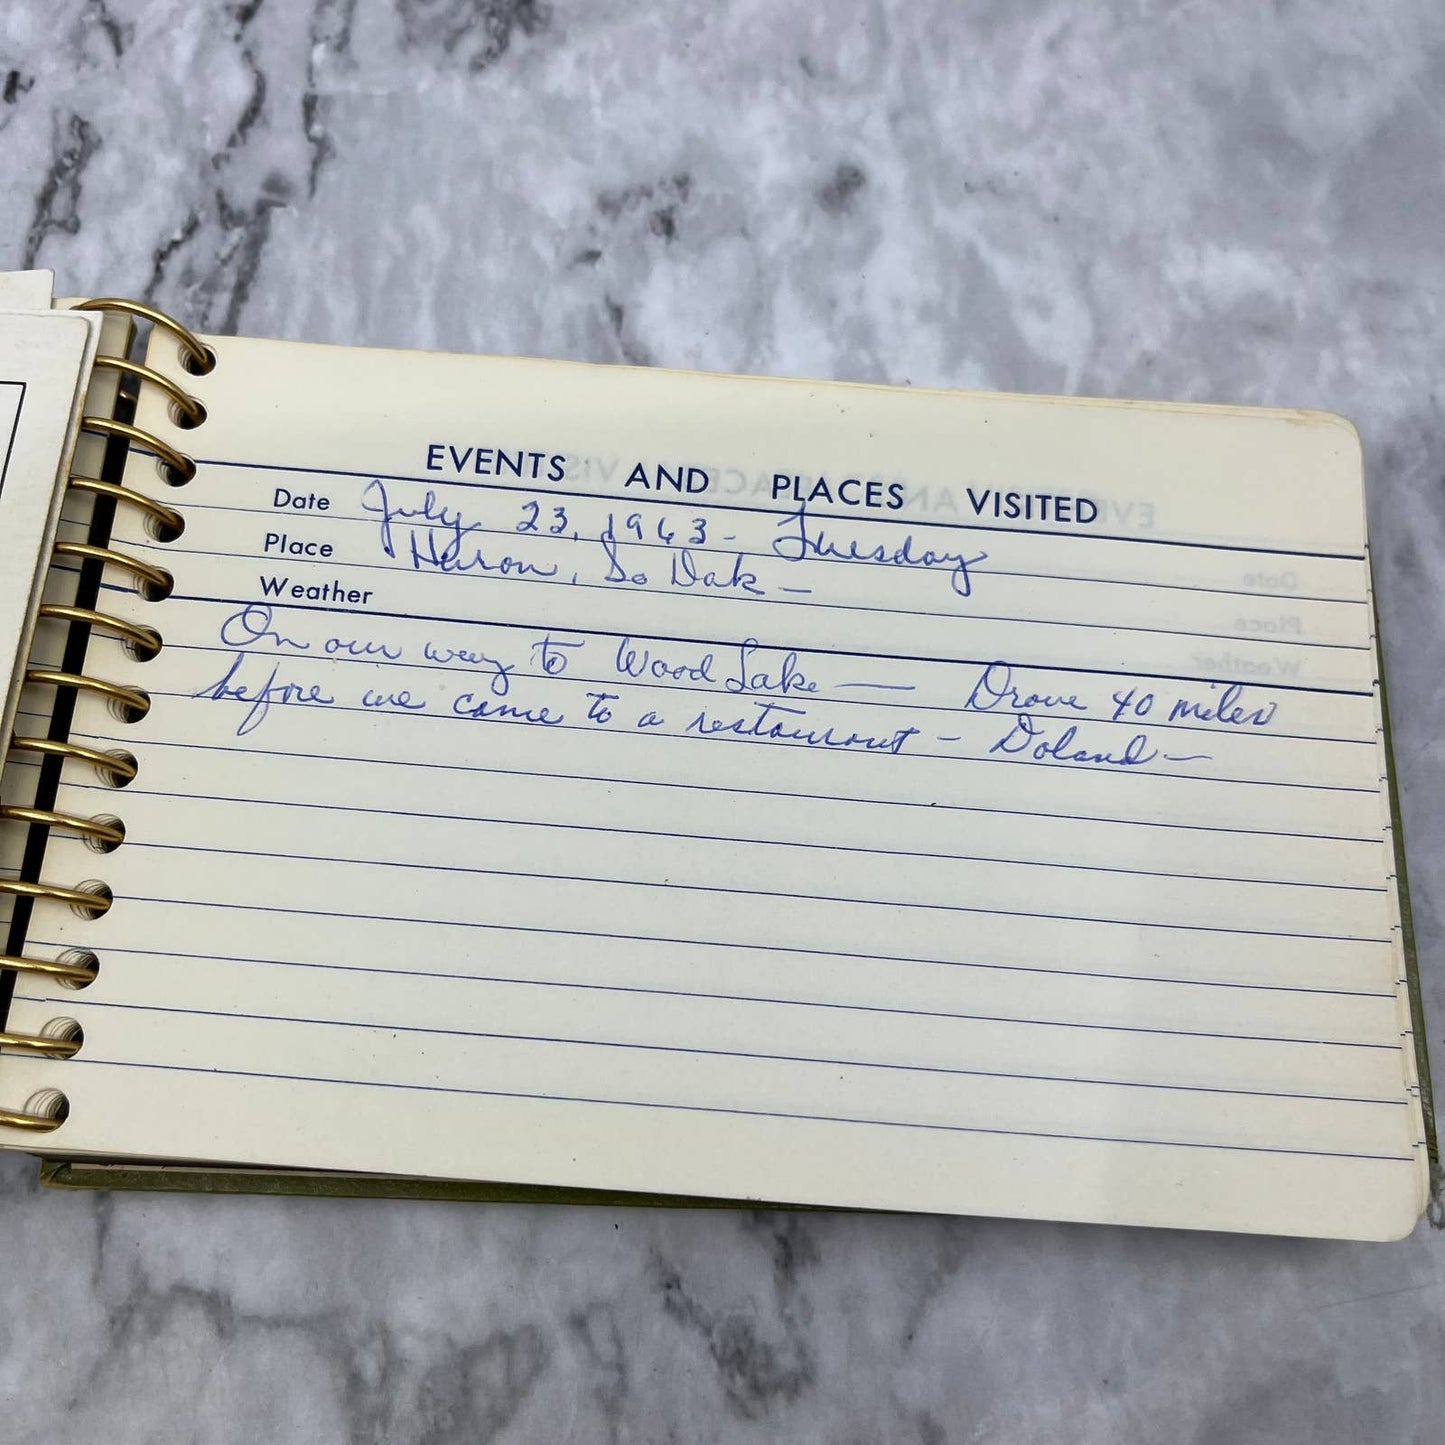 EVENTS AND PLACES VISITED
Date July 23, 1963 - Tuesday
Place Huron, So Dak -
Weather
On our way to Wood Lake — Drove 40 miles
before we came to a restaurant - Doland -